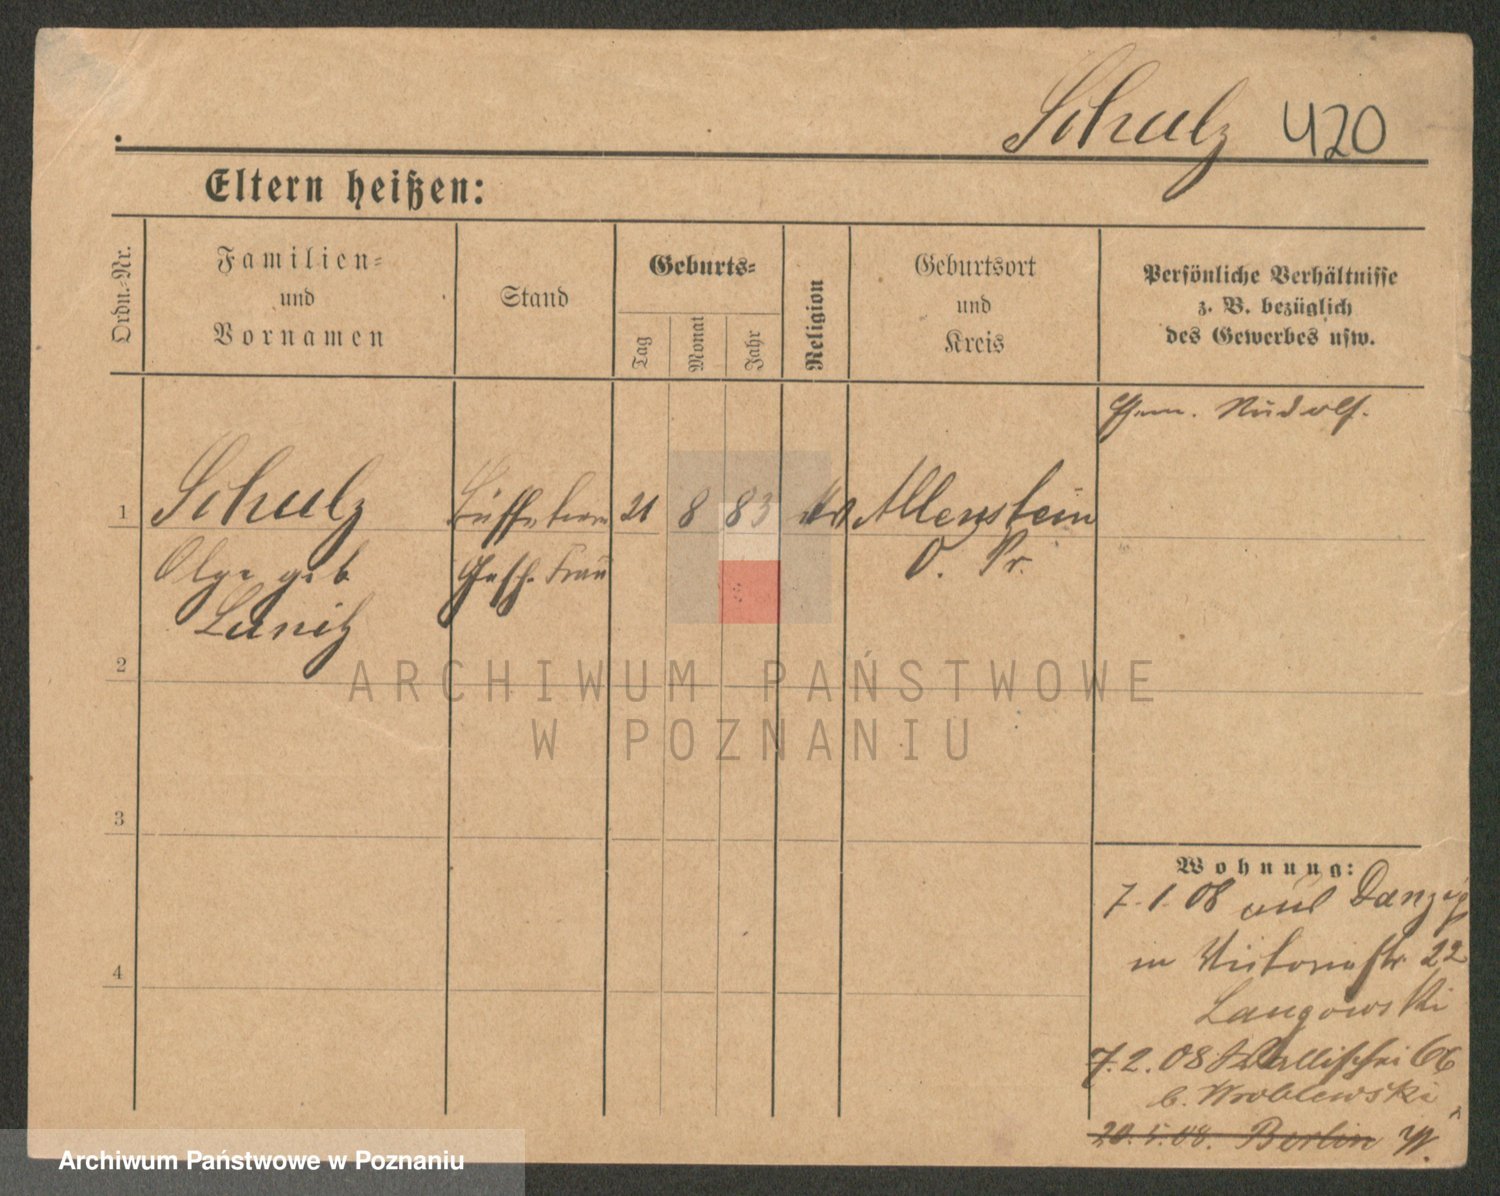 Schulz 420
Eltern heißen:
Ordn.-Nr.
Familien-
und
Vornamen
Stand
Geburts-
Tag
Monat
Jahr
Religion
Geburtsort
und
Kreis
Persönliche Verhältnisse
z. B. bezüglich
des Gewerbes usw.
Rudolf.
1 Schulz 21 8 83 Allenstein
Olga geb. Gesch. Frau O. Pr.
2
3
4
Wohnung:
7.1.08 aus Danzig
in Victoriastr. 22
Langowski
7.2.08 Wallischei 66
b. Wroblewski
20.5.08. Berlin
ARCHIWUM PAŃSTWOWE
W POZNANIU
Archiwum Państwowe w Poznaniu